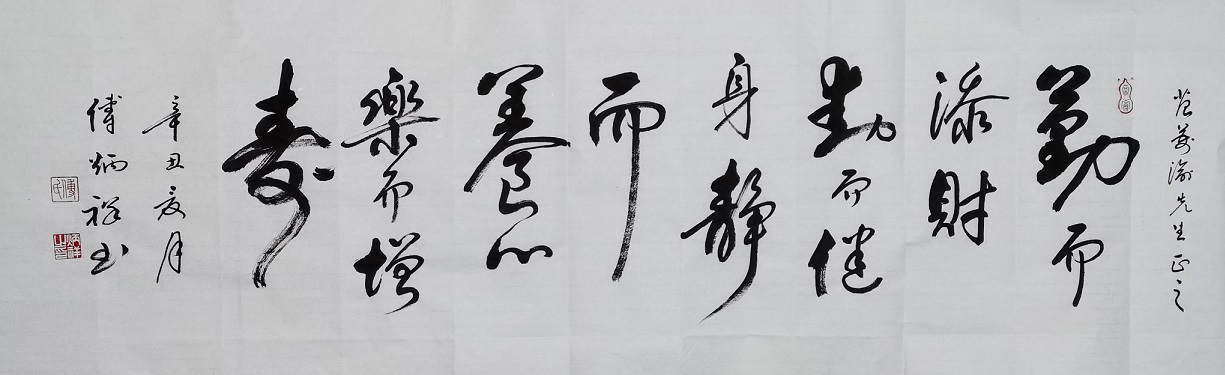 渝先生正之
勤而
添財
動而健
身靜
而
養心
樂而增
壽
辛丑夏月
傅炳祥书
炳祥之印